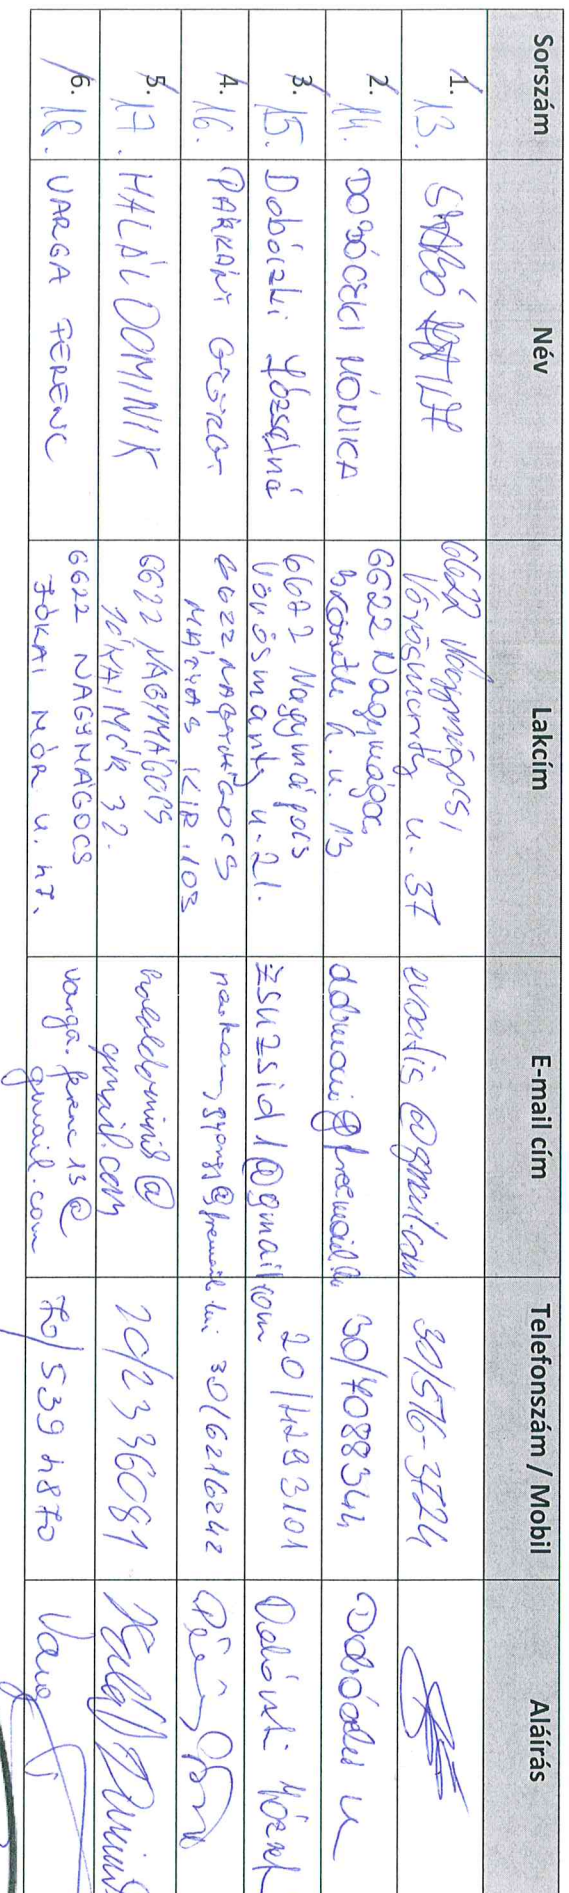 Sorszám Név Lakcím E-mail cím Telefonszám / Mobil Aláírás
1. 13. SZABÓ 6622 Nagymágocs, Vörösmarty u. 37 @gmail.com 30/576-3724
2. 14. DOBÓCZKI MÓNIKA 6622 Nagymágocs u. 13 @freemail.hu 30/4088344
3. 15. Dobóczki Józsefné 6622 Nagymágocs Vörösmarty u. 21. zsuzsid1@gmail.com 20/4293101 Dobóczki Józsefné
4. 16. PÁRKÁNYI GYÖRGY 6622 NAGYMÁGOCS MÁTYÁS KIR. 103 30/6216242
5. 17. HALÁL DOMINIK 6622 NAGYMÁGOCS JÓKAI MÓR 32. @gmail.com 20/2336081
6. 18. VARGA FERENC 6622 NAGYMÁGOCS JÓKAI MÓR u. 47. varga.ferenc13@gmail.com 70/5394870